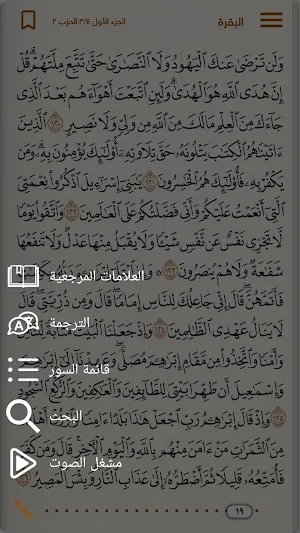 البقرة
الجزء الأول ٣/٤ الحزب ٢
وَلَن تَرْضَىٰ عَنكَ ٱلْيَهُودُ وَلَا ٱلنَّصَٰرَىٰ حَتَّىٰ تَتَّبِعَ مِلَّتَهُمْ ۗ قُلْ
إِنَّ هُدَى ٱللَّهِ هُوَ ٱلْهُدَىٰ ۗ وَلَئِنِ ٱتَّبَعْتَ أَهْوَآءَهُم بَعْدَ ٱلَّذِى
جَآءَكَ مِنَ ٱلْعِلْمِ مَا لَكَ مِنَ ٱللَّهِ مِن وَلِىٍّ وَلَا نَصِيرٍ ١٢٠ ٱلَّذِينَ
ءَاتَيْنَٰهُمُ ٱلْكِتَٰبَ يَتْلُونَهُۥ حَقَّ تِلَاوَتِهِۦٓ أُو۟لَٰٓئِكَ يُؤْمِنُونَ بِهِۦ ۗ وَمَن
يَكْفُرْ بِهِۦ فَأُو۟لَٰٓئِكَ هُمُ ٱلْخَٰسِرُونَ ١٢١ يَٰبَنِىٓ إِسْرَٰٓءِيلَ ٱذْكُرُوا۟ نِعْمَتِىَ
ٱلَّتِىٓ أَنْعَمْتُ عَلَيْكُمْ وَأَنِّى فَضَّلْتُكُمْ عَلَى ٱلْعَٰلَمِينَ ١٢٢ وَٱتَّقُوا۟ يَوْمًا
لَّا تَجْزِى نَفْسٌ عَن نَّفْسٍ شَيْـًٔا وَلَا يُقْبَلُ مِنْهَا عَدْلٌ وَلَا تَنفَعُهَا
شَفَٰعَةٌ وَلَا هُمْ يُنصَرُونَ ١٢٣
العلامات المرجعية
فَأَتَمَّهُنَّ ۖ قَالَ إِنِّى جَاعِلُكَ لِلنَّاسِ إِمَامًا ۖ قَالَ وَمِن ذُرِّيَّتِى ۖ قَالَ
لَا يَنَالُ عَهْدِى ٱلظَّٰلِمِينَ ١٢٤ وَإِذْ جَعَلْنَا ٱلْبَيْتَ مَثَابَةً لِّلنَّاسِ
الترجمة
وَأَمْنًا وَٱتَّخِذُوا۟ مِن مَّقَامِ إِبْرَٰهِۦمَ مُصَلًّى ۖ وَعَهِدْنَآ إِلَىٰٓ إِبْرَٰهِۦمَ
قائمة السور
وَإِسْمَٰعِيلَ أَن طَهِّرَا بَيْتِىَ لِلطَّآئِفِينَ وَٱلْعَٰكِفِينَ وَٱلرُّكَّعِ ٱلسُّجُودِ
١٢٥ وَإِذْ قَالَ إِبْرَٰهِۦمُ رَبِّ ٱجْعَلْ هَٰذَا بَلَدًا ءَامِنًا
البحث
مِنَ ٱلثَّمَرَٰتِ مَنْ ءَامَنَ مِنْهُم بِٱللَّهِ وَٱلْيَوْمِ ٱلْءَاخِرِ ۖ قَالَ وَمَن كَفَرَ
مشغل الصوت
فَأُمَتِّعُهُۥ قَلِيلًا ثُمَّ أَضْطَرُّهُۥٓ إِلَىٰ عَذَابِ ٱلنَّارِ ۖ وَبِئْسَ ٱلْمَصِيرُ ١٢٦
١٩